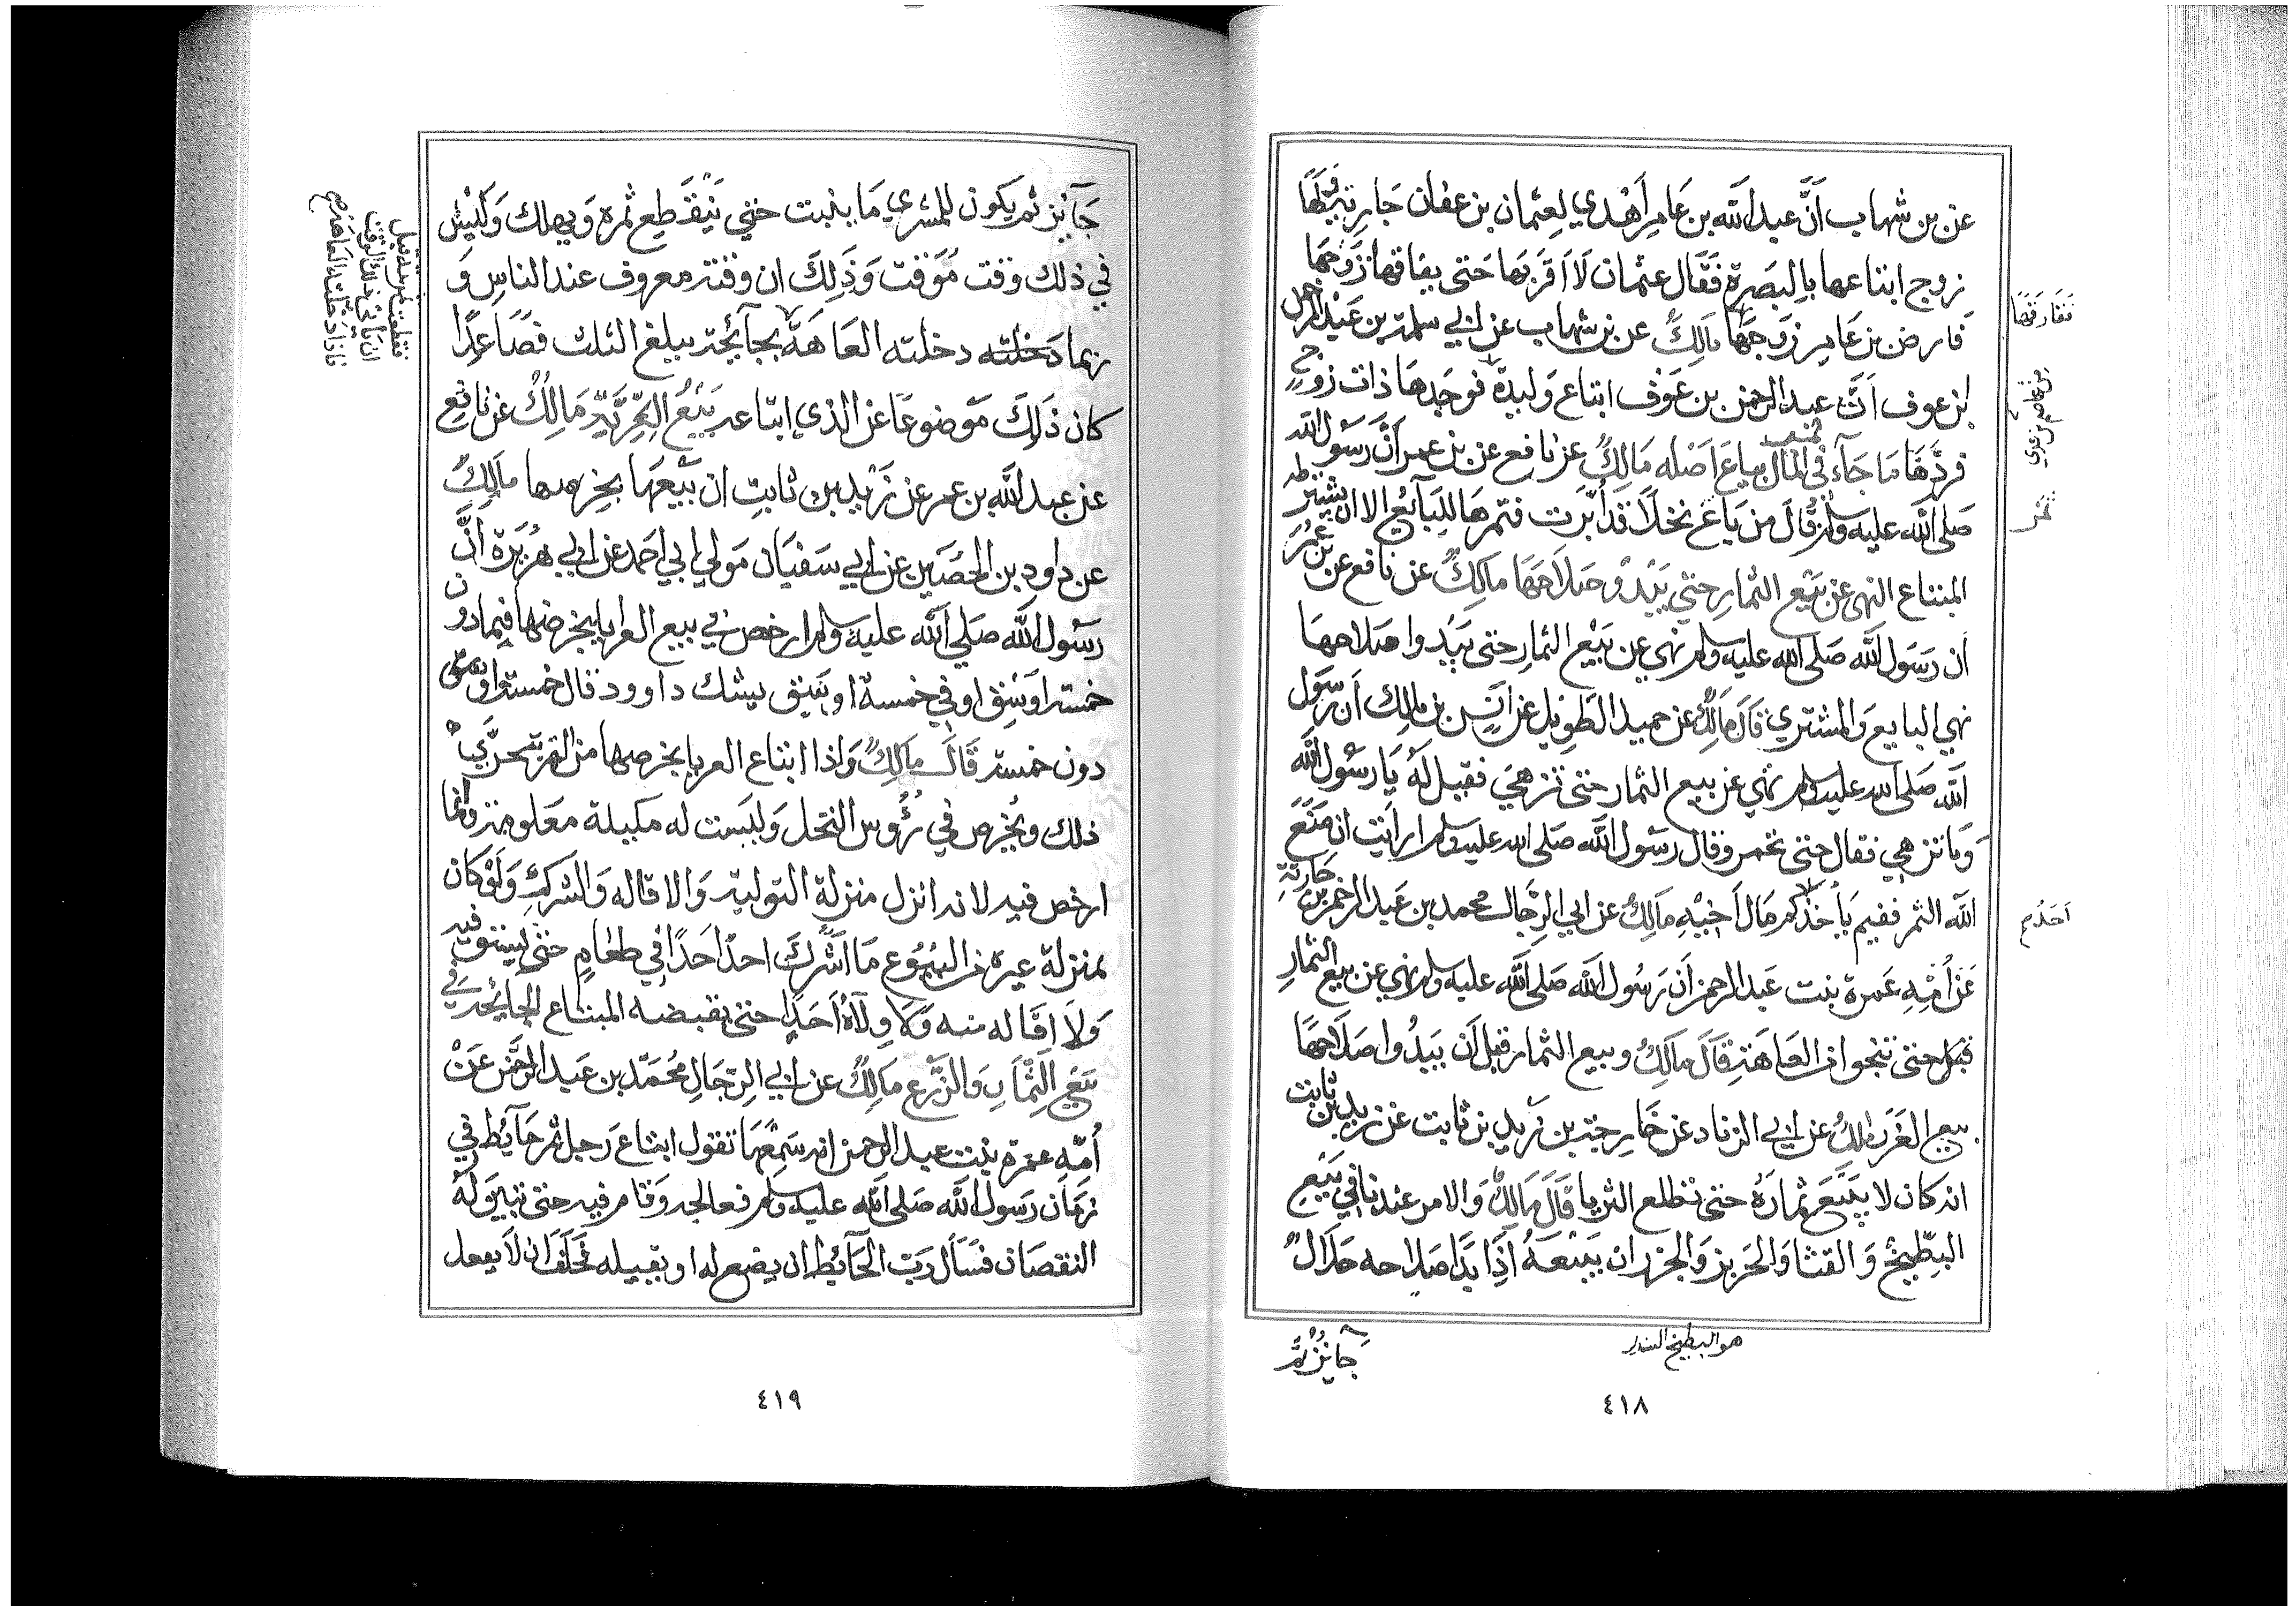 عن بن شهاب أنَّ عبد الله بن عَامِر أَهْدي لِعثمان بن عفان جَارية ولَهَا
زوج ابتاعها بالبَصَرة فَقَال عثمان لَا اَقرَبهَا حَتى يفارقها زَوجهَا
فَارضى بن عَامِر زَوجهَا مَالِكٌ عن بن شهاب عن ابي سلمة بن عَبْد الرحمن
ابن عوف اَنَّ عبد الرحمن بن عَوْف ابتاع وَليدة فوجَدهَا ذات زوجٍ
فردَّهَا مَا جَآء في المال يباع اَصْله مَالِكٌ عن نافع عن بن عمر أَنَّ رَسُول الله
صَلى الله عليه وسلم قَالَ من بَاعَ نخلَا قد أُبَّرَت فثمرهَا لِلبَآئع الا ان يشترطه
المبتاع النهى عن بَيْع الثمارِ حَتي يَبْدُو صَلَاحهَا مالِكٌ عن نافع عن بن عُمَر
أن رَسَول الله صَلى الله عليه وسلم نهي عن بَيْع الثمارِ حتى يَبْدُوا صَلاحهَا
نهي البايعَ وَالمشتري قَالَ مَالِكٌ عن حميد الطَوِيل عن أنَس بن مالِك أن رَسُول
الله صَلى الله عليه وسلم نهي عن بيع الثمار حتى تزهيَ فقيل لَهُ يَا رسُول الله
وَمَا تزهي فقال حتى تحمر وقال رسُول الله صَلى الله عليه وسلم ارأيت ان مَنَعَ
الله الثمر ففيم يَأخذكم مَال اَخيْهِ مَالِكٌ عن ابي الرِجَال محمد بن عَبد الرحمن بن حَارثة
عَن أُمّهِ عَمرة بنت عَبد الرحمن أن رَسُول الله صَلى الله عليه وسلم نهي عن بيع الثمارِ
قبَل حتى تنجوا من العَاهَةِ قَالَ مالِكٌ وبيع الثمار قبل أن يَبْدُوا صَلَاحهَا
بيع الغَرَر مالكٌ عن ابي الزناد عن خَارِجَة بن زَيد بن ثابت عن زيد بن ثابت
انه كان لا يبيَع ثمارَهُ حتى تطلع الثريا قَالَ مَالِكٌ وَالامر عندنا في بَيْع
البِطّيخ وَ القثا وَالخَربز وَالجزر ان بَيْعَهُ اذَا بَدَا صَلاحه حَلَالٌ
فَفَارَقهَا
من عَاصم بن عدي
ثمن
اَحَدُكم
هو البطيخ السندي
جَائزٌ ثمَّ
٤١٨
جَآئز ثم يكون للمشري مَا ينبت حتي يَنْقَطِع ثمره وَيهلك وَلَيْسَ
في ذلك وقت مَوَقت وَذَلِكَ ان وقته معروف عند الناس وَ
ربما دخلته دخلته العَاهَة بجَآئحة يبلغ الثلث فصَاعِدًا
كان ذَلِكَ مَوضوعًا عَن الذي ابتاعه بَيْعُ العَرِيَّةِ مَالِكٌ عَن نافِع
عن عبد الله بن عمر عن زَيْد بن ثابتِ ان بَيْعَهَا بخرصها مالِكٌ
عن داود بن الحُصَين عن ابي سَفيَان مَولي ابي احَمد عن ابي هُرَيرَة اَنَّ
رَسُول الله صَلي الله عليه وسلم ارخص في بيع العرايا بخرصها فيما دون
خمسة اوَسُق او في خمسة اوسُق يشك داوود قال خمسة او
دون خمسة قَالَ مَالِكٌ وَاذا ابتاع العرايا بخرصها من التمر يتحرَّي
ذلك ويُخرص في رُؤُوس النخل وَليست له مكيلة مَعَلومة وانما
ارخص فيه لانه انزل منزلة التولية وَالاقاله وَالشركِ وَلَوْ كان
بمنزلة غيره من البُيُوع مَا اشَّرَكَ احدٌ اَحَدًا في طعَامٍ حتى يستوفيه
وَلاَ اقَاله منه وَلا ولاهُ اَحَدًا حتى يقبضه المبتاع الجائحة في
بَيْع الثِمَارِ وَالزَّرْع مَالِكٌ عن ابي الرِّجَالِ مُحَمَّد بن عَبد الرَّحمن عَنْ
أُمّه عمَرة بنت عبد الرحمن انه سَمِعَهَا تقول ابتاعَ رَجل ثمر حَآئط في
زمَان رَسول الله صَلى الله عليه وسلم فعالجه وَقامر فيه حتى تبين لهُ
النقصَان فسَأل رَبّ الحَآئط ان يضع له او يقيله فحَلَفَ ان لَا يفعل
٤١٩